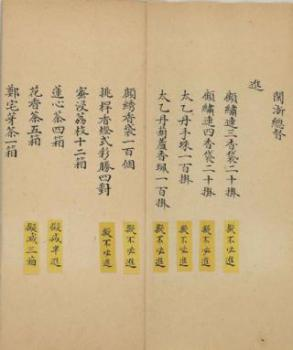 閩浙總督
進
顧繡連三香袋二十掛
顧繡連四香袋二十掛 擬不必進
太乙丹手珠一百掛 擬不必進
太乙丹葫蘆香佩一百掛 擬不必進
顧綉香袋一百個 擬不必進
挑桿香燈式彩勝四對 擬不必進
蜜浸荔枝十二箱
蓮心茶四箱 擬減半進
花香茶五箱 擬減三箱
鄭宅芽茶一箱